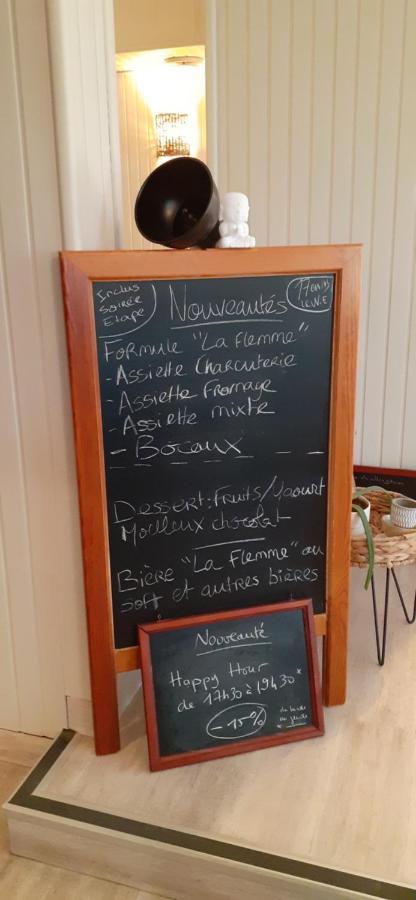 Inclus
Soirée
Etape
Nouveautés
Formule "La flemme"
- Assiette Charcuterie
- Assiette Fromage
- Assiette mixte
- Bocaux
Dessert: Fruits/Yaourt
Moelleux chocolat
Bière "La Flemme" ou
soft et autres bières
Nouveauté
Happy Hour
de 17h30 à 19h30*
- 15%
* du lundi
au jeudi